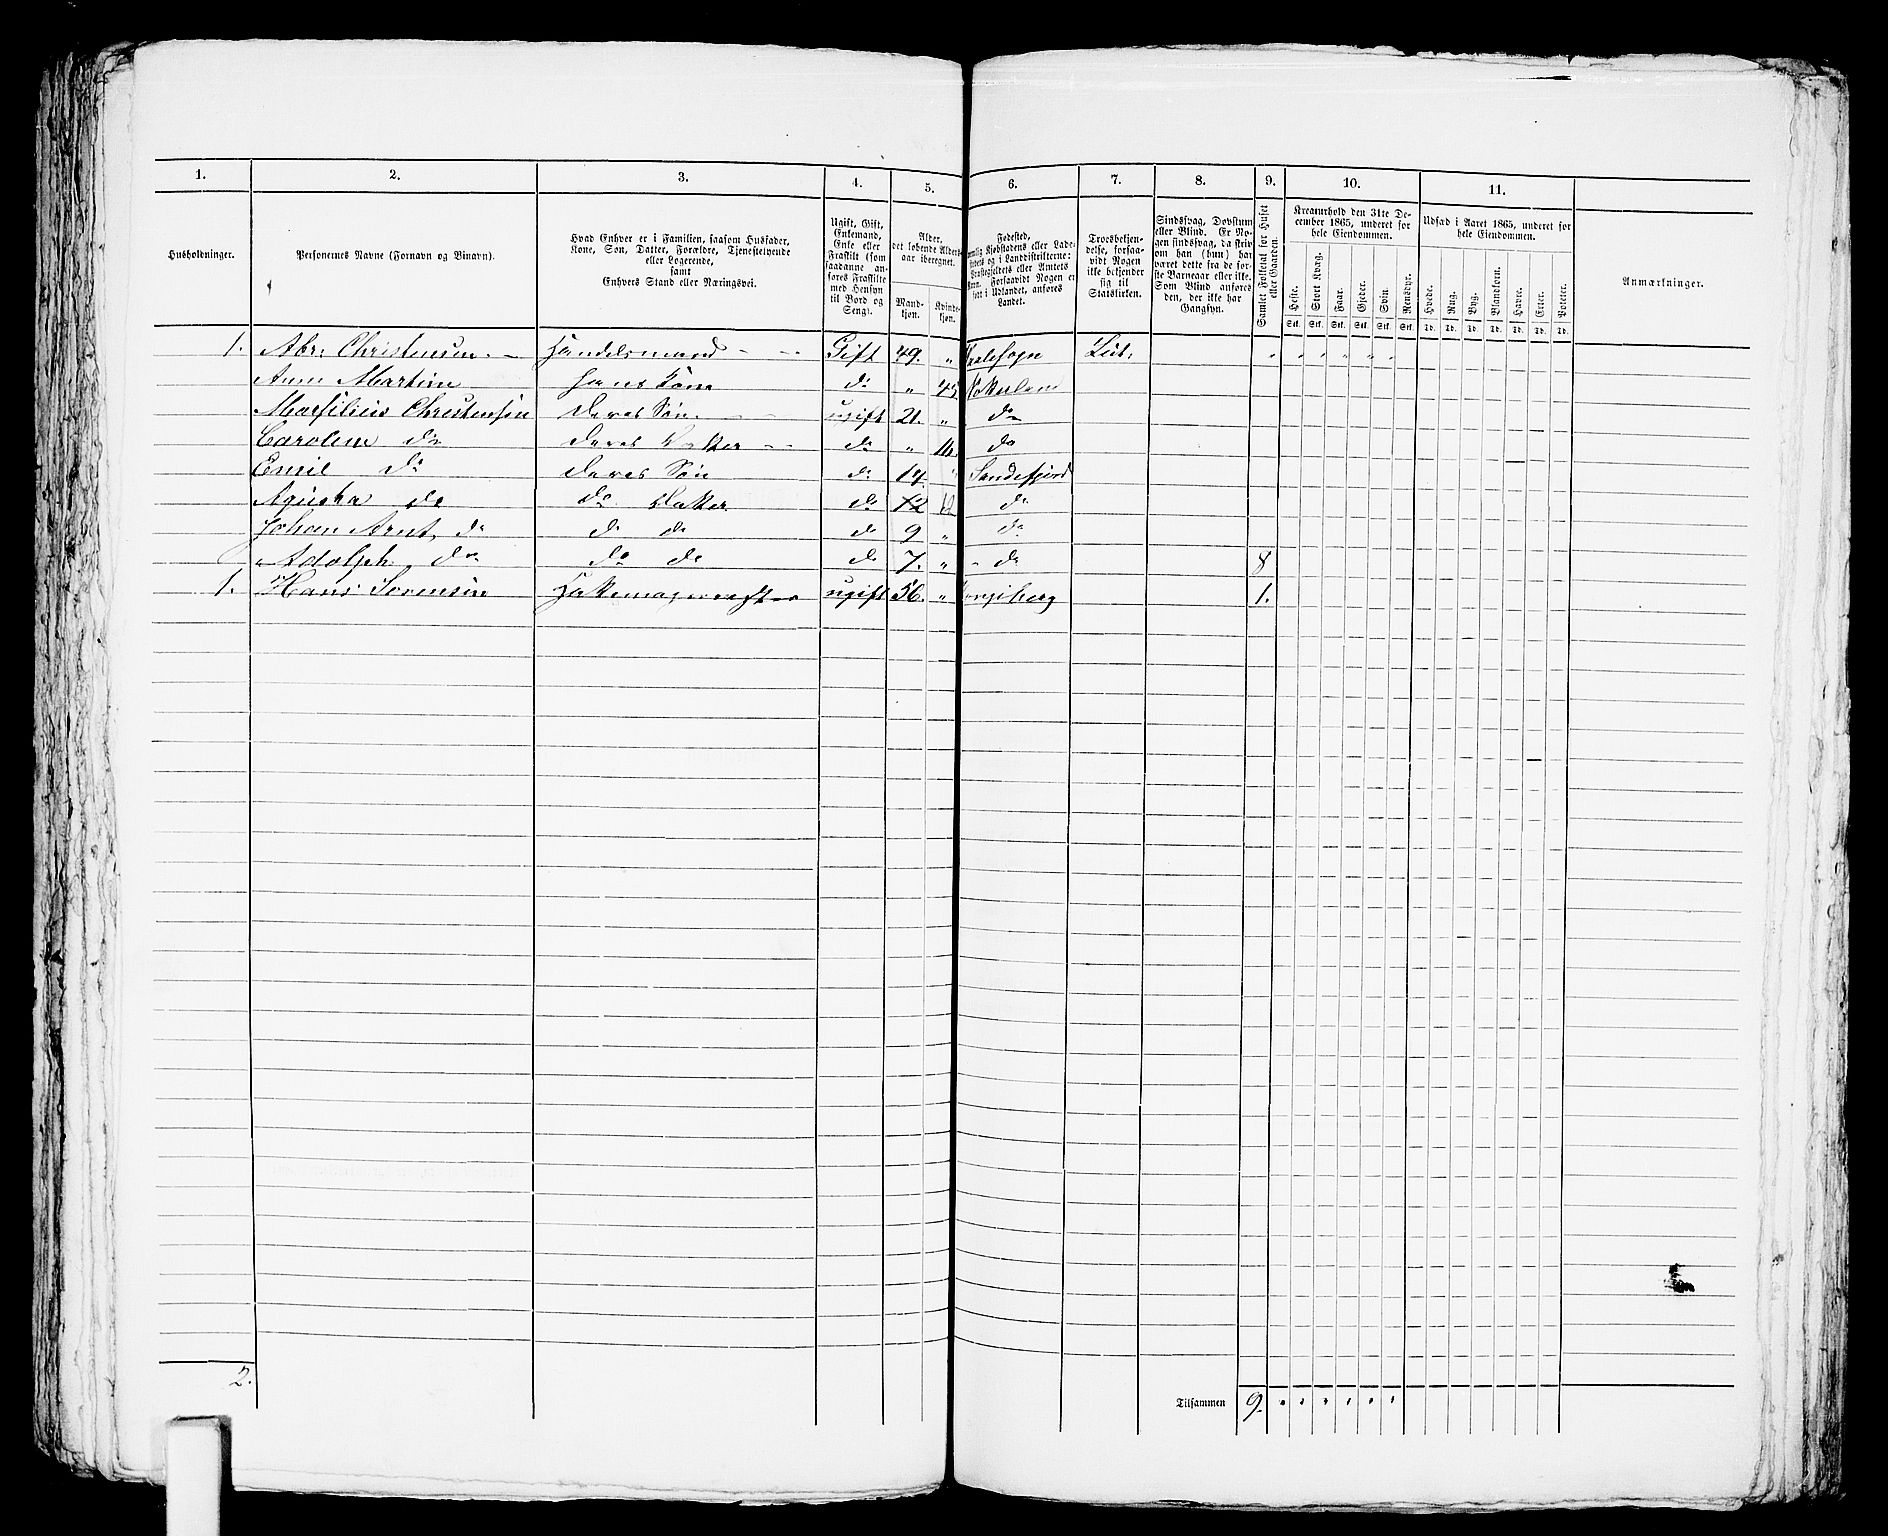 1. 2. 3. 4. 5. 6. 7. 8. 9. 10. 11.
Husholdninger.
Personernes Navne (Fornavn og Binavn).
Hvad Enhver er i Familien, saasom Husfader,
Kone, Søn, Datter, Forældre, Tjenestetyende
eller Logerende,
samt
Enhvers Stand eller Næringsvei.
Ugift, Gift,
Enkemand,
Enke eller
Fraskilt (som
saadanne an-
føres Fraskilte
med Hensyn
til Bord og
Seng).
Alder,
det løbende Alders-
aar iberegnet.
Mand-
kjøn.
Kvinde-
kjøn.
Fødested,
Kjøbstadens eller Lade-
stedets og i Landdistrikterne:
Præstegjeldets eller Amtets
Navn. Forsaavidt Nogen er
født i Udlandet, anføres
Landet.
Troesbekjen-
delse, forsaa-
vidt Nogen
ikke bekjender
sig til
Statskirken.
Sindssvag, Døvstum
eller Blind. Er No-
gen sindssvag, da skriv
om han (hun) har
været dette fra de før-
ste Barneaar eller ikke.
Som Blind anføres
den, der ikke har
Gangsyn.
Samlet Folketal for Huset
eller Gaarden.
Kreaturhold den 31te De-
cember 1865, underet for
hele Eiendommen.
Heste. Stort Kvæg. Faar. Gjeder. Svin. Rensdyr.
Stk. Stk. Stk. Stk. Stk. Stk.
Udsæd i Aaret 1865, underet for
hele Eiendommen.
Hvede. Rug. Byg. Blandkorn. Havre. Erter. Poteter.
Td. Td. Td. Td. Td. Td. Td.
Anmærkninger.
1. Abr: Christensen Handelsmand Gift 49. " Lut.
Ann Martine hans Kone do " 45
Marsilius Christensen deres Søn ugift 21. " do
Caroline do deres Datter do " 16. do
Emil do deres Søn do 14. " Sandefjord
do do Datter do 12 12 do
Johan Arnt do do do do 9 " do
Adolph do do do do 7. " do 8
1. Hans Sørensen ugift 56. " Kongsberg 1.
2.
Tilsammen 9. " " " " " "